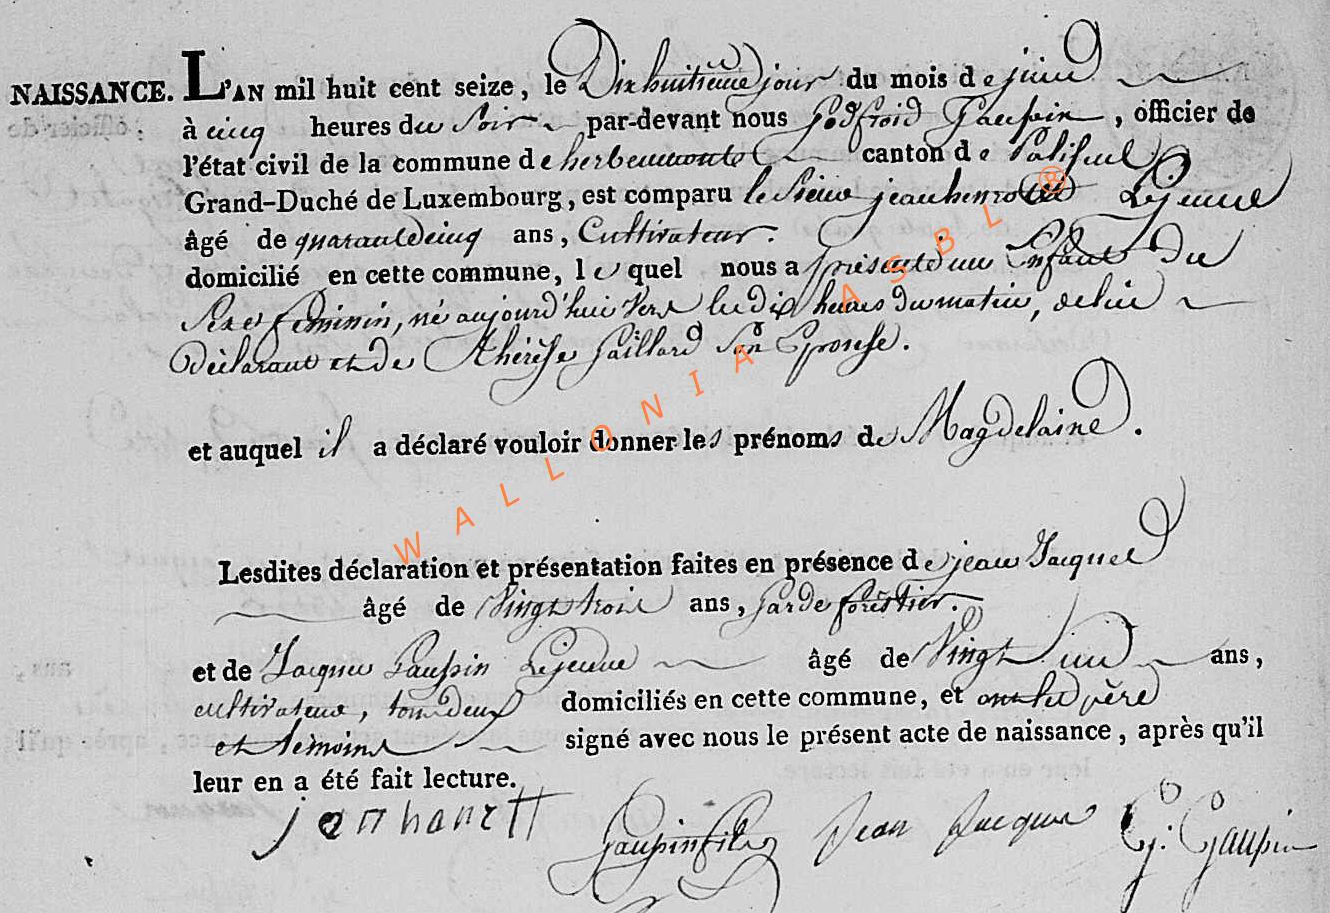 NAISSANCE. L'AN mil huit cent seize, le Dixhuitième jour du mois de juin
à cinq heures du Soir par-devant nous Godfroid Gaupin, officier de
l'état civil de la commune de herbeumont canton de Paliseul
Grand-Duché de Luxembourg, est comparu le Sieur jean henrotet Lejeune
âgé de quarantecinq ans, Cultivateur.
domicilié en cette commune, lequel nous a présenté un Enfant Du
Sexe féminin, né aujourd'hui vers les dix heures du matin, de lui
Déclarant et de Thérèse Gaillard Son Epouse.
et auquel il a déclaré vouloir donner les prénoms de Magdelaine.
Lesdites déclaration et présentation faites en présence de jean Jacques
âgé de Vingt trois ans, Garde forestier.
et de Jacques Gaupin Lejeune âgé de Vingt un ans,
cultivateur, tous deux domiciliés en cette commune, et ont les père
et témoins signé avec nous le présent acte de naissance, après qu'il
leur en a été fait lecture.
Gaupin fils Jean Jacques G. Gaupin
WALLONIA ASBL ®